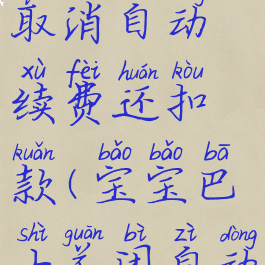 取消自动
xù fèi huán kòu
续费还扣
kuǎn bǎo bǎo bā
款(宝宝巴
shì guān bì zì dòng
士关闭自动